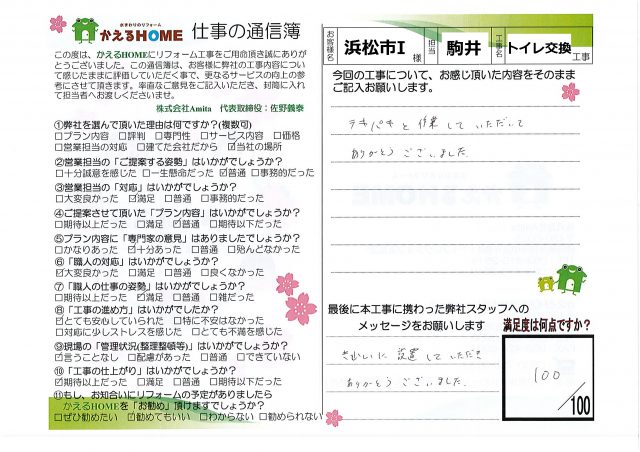 水まわりのリフォーム
かえるHOME 仕事の通信簿
この度は、かえるHOMEにリフォーム工事をご用命頂き誠にありが
とうございました。この通信簿は、お客様に弊社の工事内容につい
て感じたままに評価していただく事で、更なるサービスの向上の参
考にさせて頂きます。率直なご意見をご記入いただき、封筒に入れ
て担当者へお渡しくださいませ。
株式会社Amita 代表取締役:佐野義泰
①弊社を選んで頂いた理由は何ですか?(複数可)
□プラン内容 □評判 □専門性 □サービス内容 □価格
□営業担当の対応 □建てた会社だから ☑当社の場所
②営業担当の「ご提案する姿勢」はいかがでしょうか?
□十分誠意を感じた □一生懸命だった ☑普通 □事務的だった
③営業担当の「対応」はいかがでしょうか?
□大変良かった ☑満足 □普通 □事務的だった
④ご提案させて頂いた「プラン内容」はいかがでしょうか?
□期待以上だった □満足 ☑普通 □期待以下だった
⑤プラン内容に「専門家の意見」はありましたでしょうか?
□かなりあった ☑十分あった □普通 □殆んどなかった
⑥「職人の対応」はいかがでしょうか?
☑大変良かった □満足 □普通 □良くなかった
⑦「職人の仕事の姿勢」はいかがでしょうか?
□期待以上だった ☑満足 □普通 □雑だった
⑧「工事の進め方」はいかがでしたか?
☑とても安心していられた □特に不安はなかった
□対応に少しストレスを感じた □とても不満を感じた
⑨現場の「管理状況(整理整頓等)」はいかがでしょうか?
☑言うことなし □配慮があった □普通 □できていない
⑩「工事の仕上がり」はいかがでしょうか?
☑期待以上だった □満足 □普通 □期待以下だった
⑪もし、お知合いにリフォームの予定がありましたら
かえるHOMEを「お勧め」頂けますでしょうか?
□ぜひ勧めたい ☑勧めてもいい □わからない □勧められない
お客様名 浜松市I 様 担当 駒井 工事名 トイレ交換 工事
今回の工事について、お感じ頂いた内容をそのまま
ご記入お願いします。
テキパキと作業していただいて
ありがとうございました。
最後に本工事に携わった弊社スタッフへの
メッセージをお願いします
きれいに設置していただき
ありがとうございました。
満足度は何点ですか?
100
/100